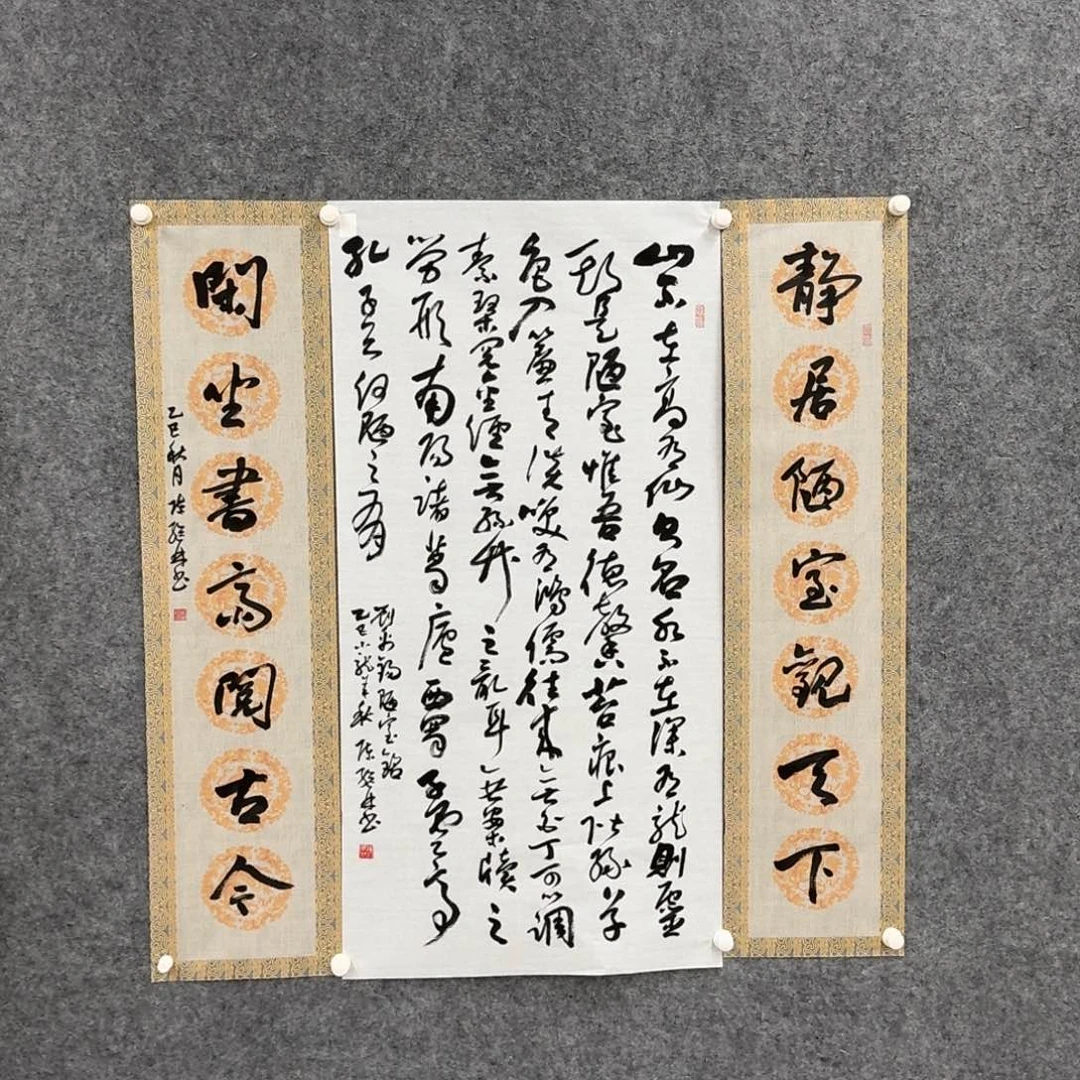 静居陋室觀天下
山不在高有仙则名水不在深有龍則靈
斯是陋室惟吾德馨苔痕上阶綠草
色入簾青談笑有鴻儒往來無白丁可以調
素琴閱金經無絲竹之亂耳無案牘之
勞形南陽諸葛廬西蜀子雲亭
孔子云何陋之有
劉禹錫陋室銘
乙巳小龍年秋 陈林书
閑坐書斋閱古今
乙巳秋月 陈林书